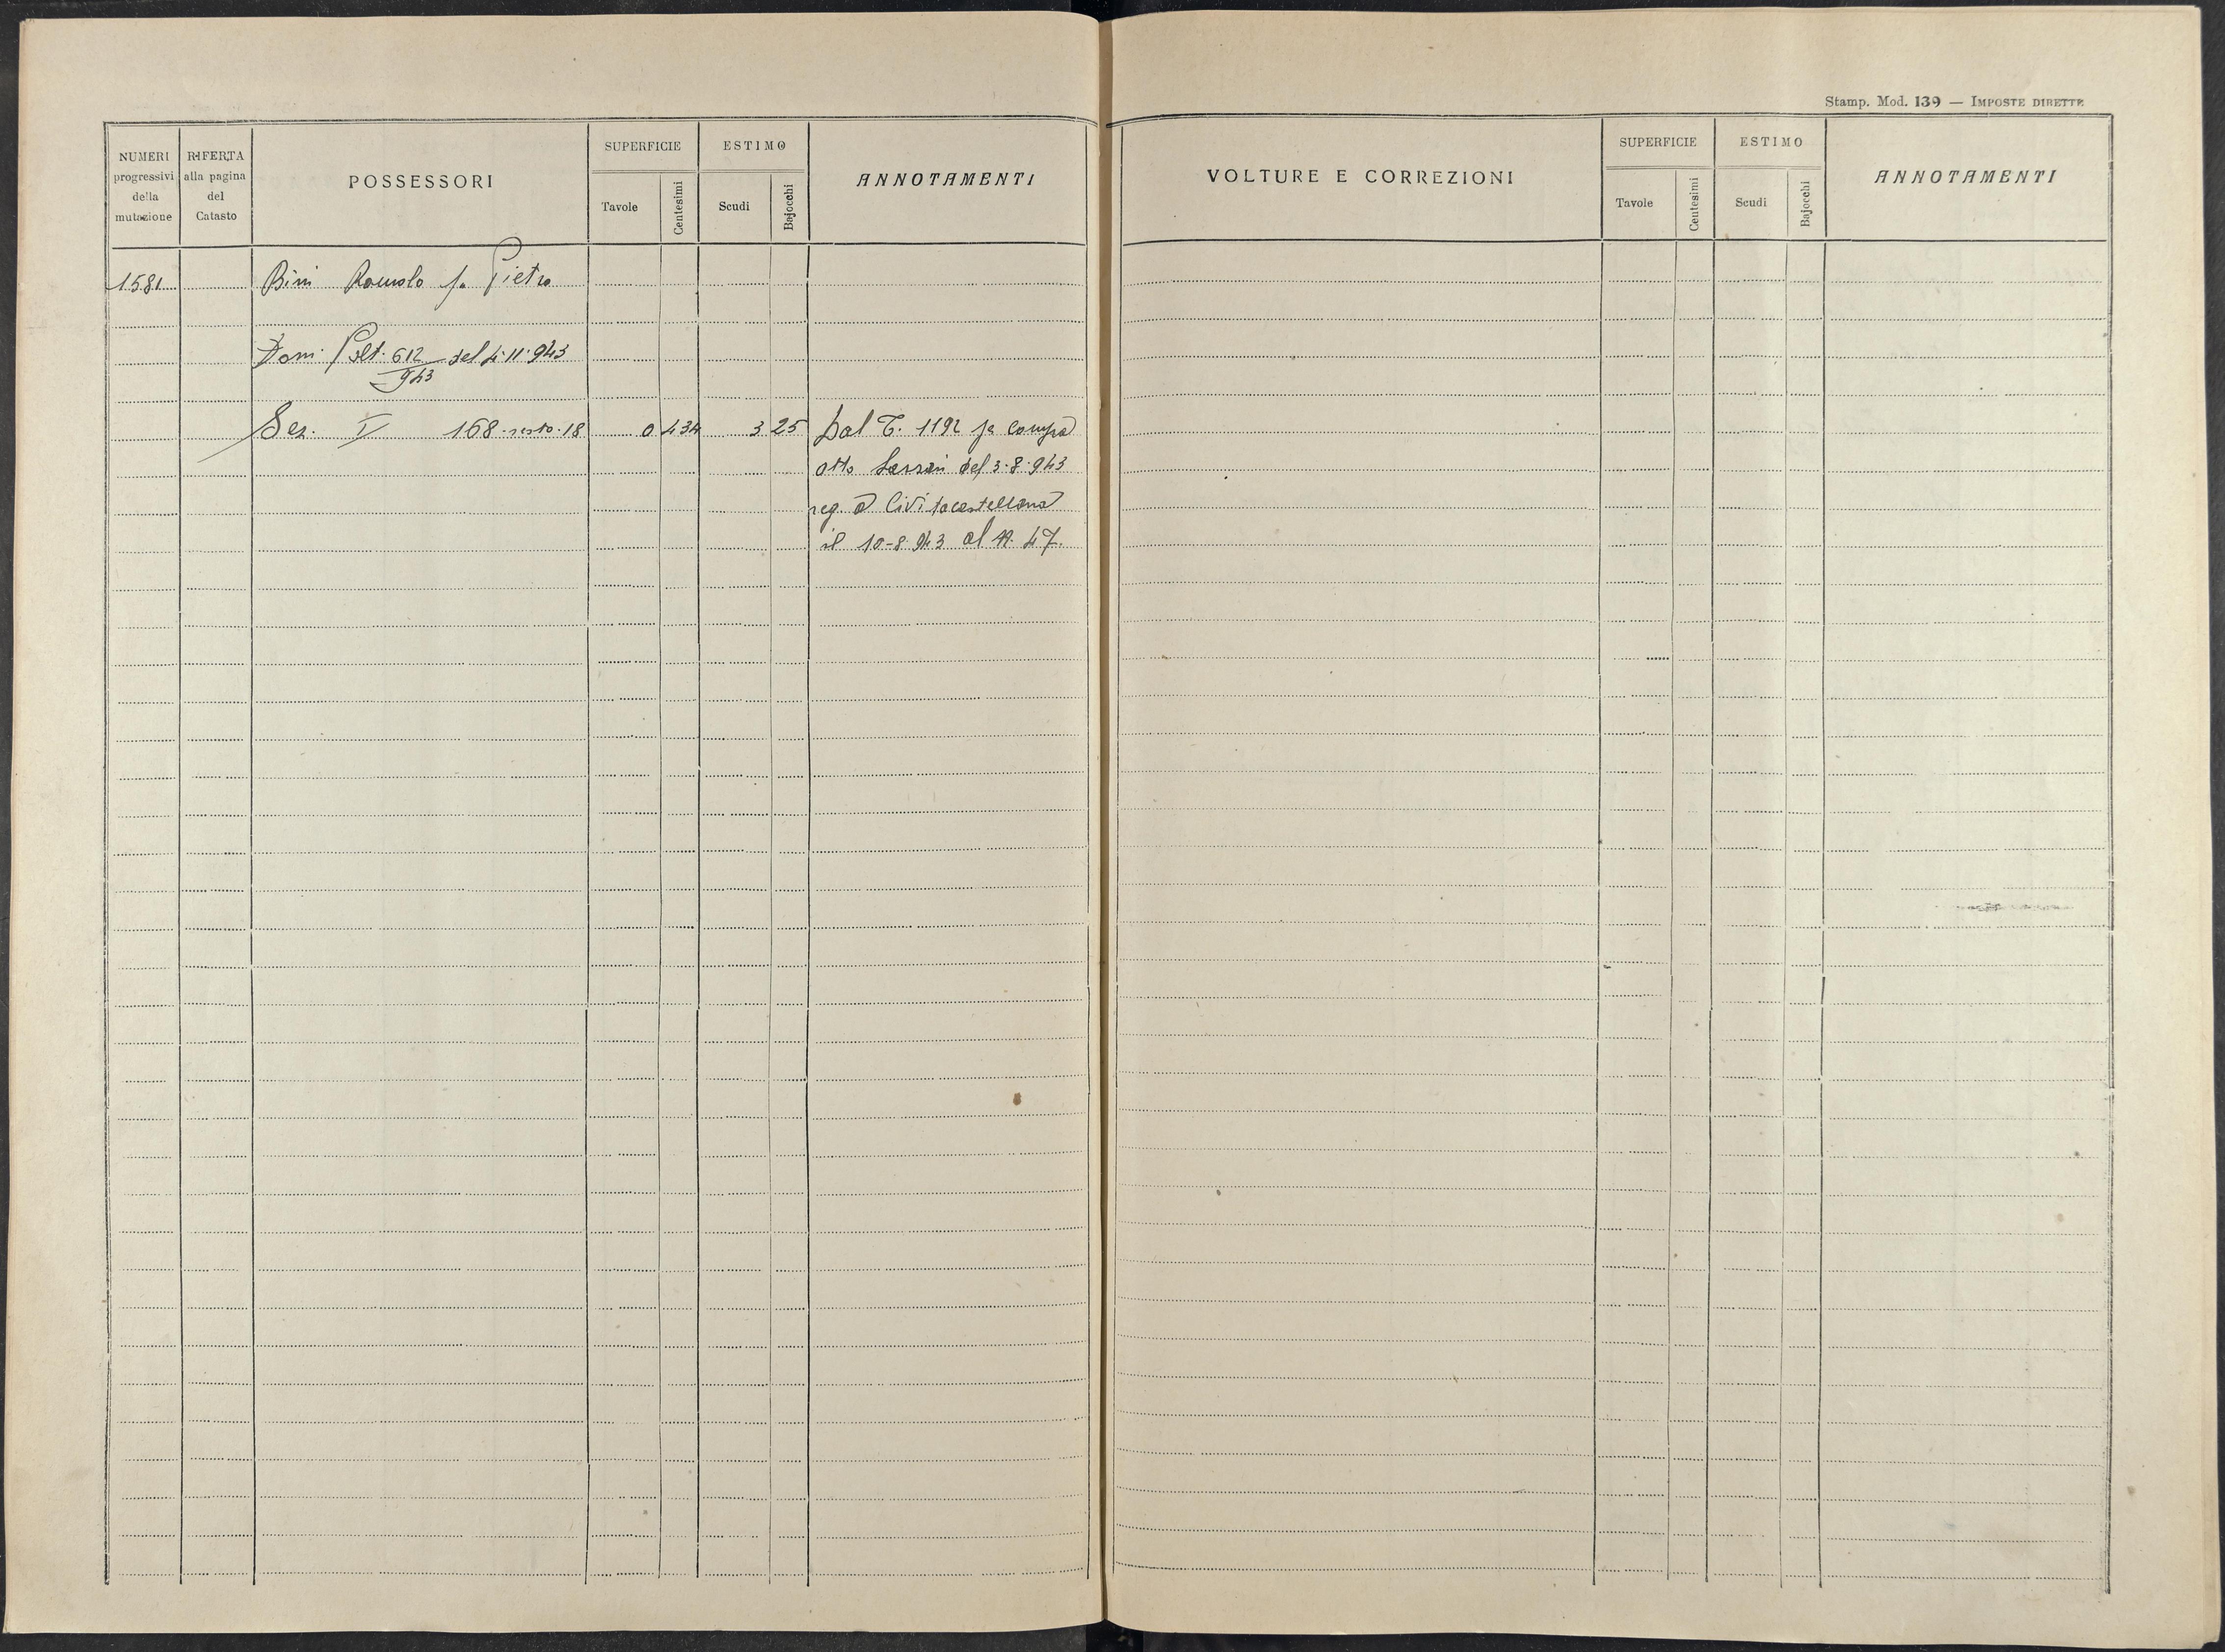 Stamp. Mod. 139 — IMPOSTE DIRETTE
NUMERI progressivi della mutazione
RIFERTA alla pagina del Catasto
POSSESSORI
SUPERFICIE
Tavole
Centesimi
ESTIMO
Scudi
Bajocchi
ANNOTAMENTI
VOLTURE E CORREZIONI
SUPERFICIE
Tavole
Centesimi
ESTIMO
Scudi
Bajocchi
ANNOTAMENTI
1581 Bini Romolo fu Pietro
Dom. Volt. 612/943 del 4.11.943
Sez. I 168 resto 18 0 434 3 25 Dal T. 1192 pe compra
atto del 3.8.943
reg. a Civitacastellana
il 10-8.943 al N. 47.